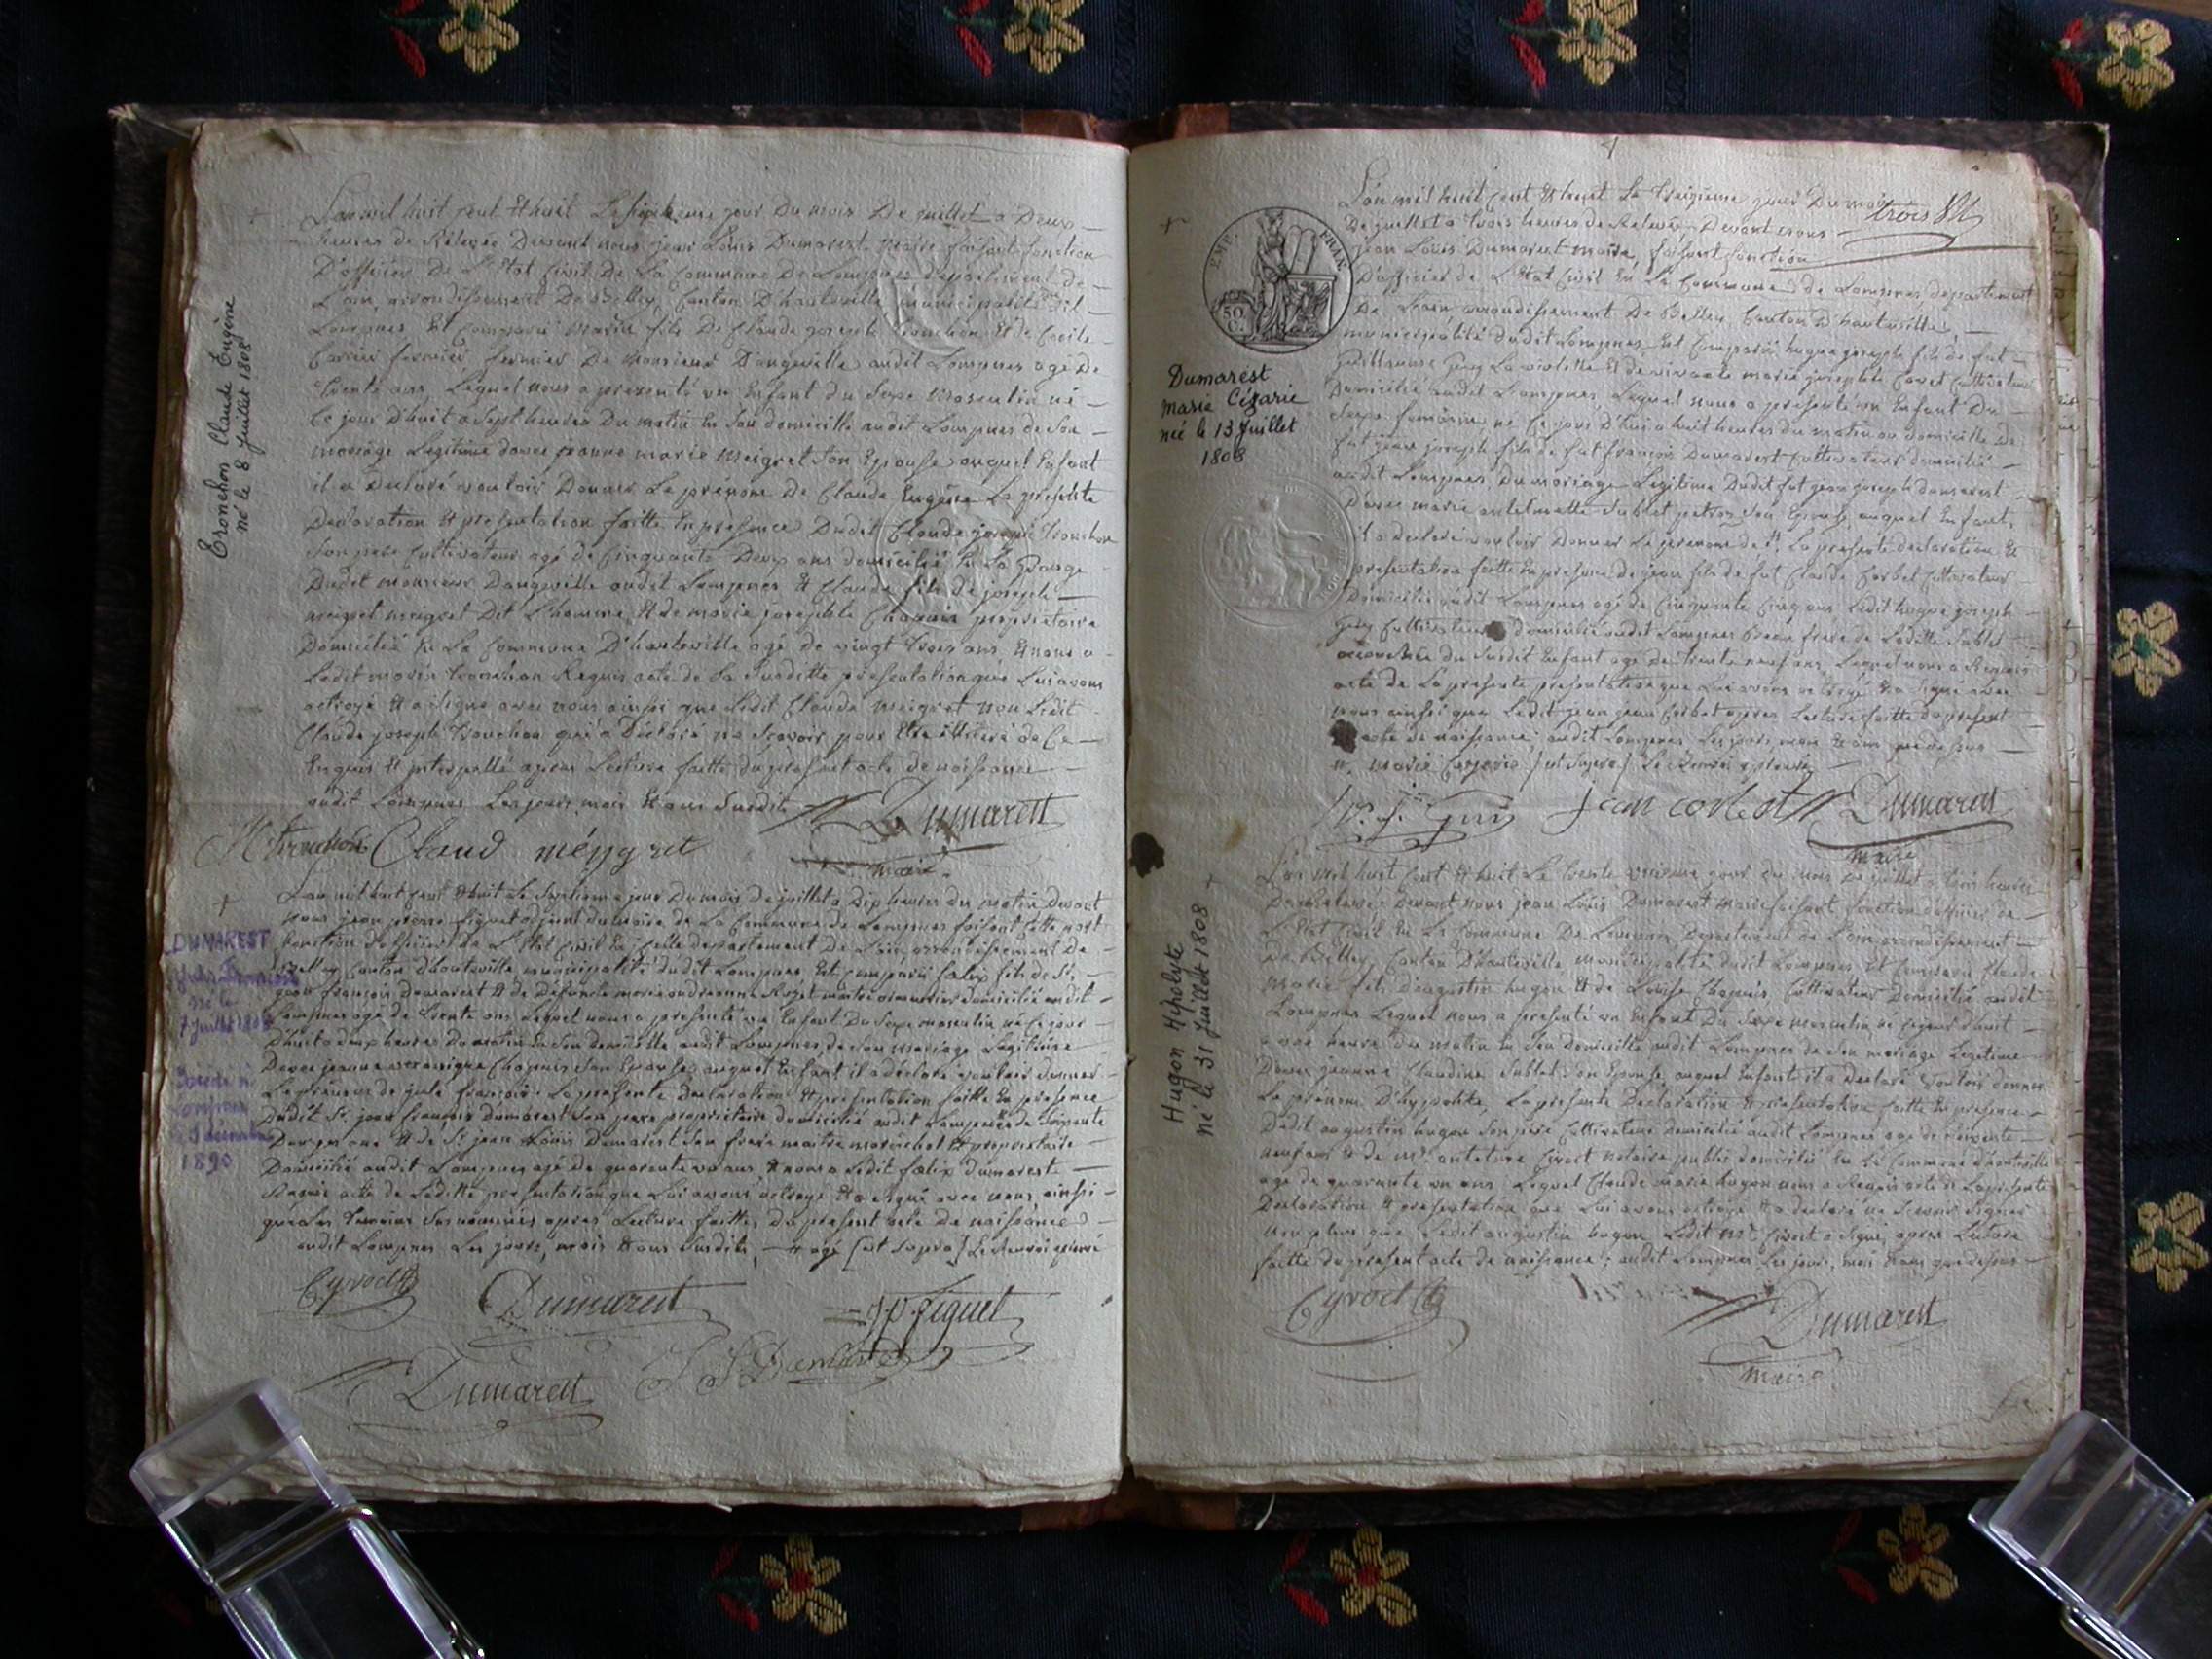 L'an mil huit cent & huit Le septieme jour du mois De juillet a Deux
heures de Relevée Devant nous jean Louis Dumarest maire faisant fonction
D'officier de L'Etat Civil de La Commune De Lompnes département de
L'ain arrondissement De Belley Canton D'hauteville municipalité dit
Lompnes Est Comparu marin fils De Claude joseph tronchon & de
fermier De Monsieur Dangeville audit Lompnes agé De
trente ans Lequel nous a presenté un Enfant du Sexe Masculin né
Ce jour D'huit a Sept heures Du matin En Son domicille audit Lompnes de Son
mariage Legitime davec jeanne marie meigret Son Epouse auquel Enfant
il a Declaré vouloir Donner Le prénom De Claude Eugène La presente
Declaration & presentation faitte En presence Dudit Claude joseph tronchon
Son pere Cultivateur agé de Cinquante Deux ans domicilié En La Grange
Dudit monsieur Dangeville audit Lompnes & Claude fils de joseph
meigret Dit L'homme & de marie josephte Chapuis propriétaire
Domicilié En La Commune D'hauteville agé de vingt trois ans & nous a
Ledit marin tronchon Requis acte de La Susditte présentation que Lui avons
octroyé & a Signé avec nous ainsi que Ledit Claude meigret non Ledit
Claude joseph tronchon qui a Déclaré ne Scavoir pour Etre illitéré de Ce
Enquis & interpellé apres Lecture faitte du présent acte de naissance
audit Lompnes Les jour mois & an Susdits
Dumarest
M tronchon Claud méngret
maire
Tronchon Claude Eugène
né le 8 Juillet 1808
L'an mil huit cent & huit Le Septieme jour Du mois De juillet a Dix heures du matin Devant
nous jean pierre figuet adjoint du maire de La Commune de Lompnes faisant
fonction d'officier de L'Etat Civil En icelle departement de L'ain arrondissement De
Belley Canton d'hauteville municipalité dudit Lompnes Est Comparu fælix fils de Sr
jean françois Dumarest & de Défunte marie domicilié audit
Lompnes agé de trente ans Lequel nous a presenté un Enfant Du Sexe masculin né Ce jour
D'huit a heures Du matin En Son domicille audit Lompnes de Son mariage Legitime
Davec jeanne veronique Chapuis Son Epouse auquel Enfant il a déclaré vouloir donner
Le prénom de jule françois La presente Declaration & presentation faitte En presence
Dudit Sr jean françois Dumarest Son pere propriétaire domicilié audit Lompnes de Soixante
ans & de Sr jean Louis Dumarest Son frere maitre maréchal & propriétaire
Domicilié audit Lompnes agé de quarente un ans & nous a Ledit fælix dumarest
Requis acte de Laditte presentation que Lui avons octroyé & a Signé avec nous ainsi
que Les temoins Surnommés apres Lecture faitte du present acte de naissance
audit Lompnes Les jour, mois & ans Susdits, & agé [ut Supra] Le Renvoi
Cyvoct
Dumarest
jp figuet
Dumarest
J L Dumarest
DUMAREST
Jules François
né le
7 Juillet 1808
Décédé à
Lompnes
décembre
1890
trois
EMP. FRAN.
50 C.
L'an mil huit cent & huit Le treizieme jour Du mois
De juillet a trois heures de Relevée Devant nous
jean Louis Dumarest maire, faisant fonction
D'officier de L'Etat Civil En La Commune de Lompnes departement
De L'ain arrondissement De Belley Canton D'hauteville
municipalité dudit Lompnes Est Comparu hugue joseph fils de fut
Guillaume Guy La violette & de vivante marie josephte Cultivateur
Domicilié audit Lompnes Lequel nous a presenté un Enfant Du
Sexe feminin né Ce jour D'hui a huit heures du matin au domicille De
fut jean joseph fils de fut françois Dumarest Cultivateur domicilié
audit Lompnes Du mariage Legitime Dudit fut jean joseph dumarest
Davec marie Sublet Son Epouse auquel Enfant
il a declaré vouloir Donner Le prenom de La presente declaration &
presentation faitte En presence de jean fils de fut Claude Corbet Cultivateur
Domicilié audit Lompnes agé de Cinquante Cinq ans Ledit hugue joseph
Guy Cultivateur domicilié audit Lompnes Beau frere de Laditte Sublet
accouchée du Susdit Enfant agé De trente neuf ans Lequel nous a Requis
acte de La presente presentation que Lui avons octroyé & a Signé avec
nous ainsi que Ledit jean Corbet apres Lecture faitte du present
acte de naissance audit Lompnes Les jour, mois & an que dessus
marie Cezarie [ut Supra] Le Renvoi
jean corbet
Dumarest
maire
Dumarest
Marie Césarie
née le 13 Juillet
1808
L'an mil huit Cent & huit Le trente unieme jour du mois De juillet a trois heures
De Relevée Devant nous jean Louis Dumarest maire faisant fonction d'officier de
L'Etat Civil En La Commune De Lompnes Departement de L'ain arrondissement
De Belley Canton D'hauteville municipalité dudit Lompnes Est Comparu Claude
Marie fils D'augustin hugon & de Louise Chapuis Cultivateur Domicilié audit
Lompnes Lequel nous a presenté un Enfant Du Sexe masculin né Ce jour d'huit
a une heure Du matin En Son Domicille audit Lompnes de Son mariage Legitime
Davec jeanne Claudine Sublet Son Epouse auquel Enfant il a Declaré Vouloir donner
Le prénom D'hypolite, La presente Declaration & presentation faitte En presence
Dudit augustin hugon Son pere Cultivateur domicilié audit Lompnes agé de Soixante
neuf ans & de Mr Civoct notaire public domicilié En La Commune d'hauteville
agé de quarante un ans Lequel Claude marie hugon nous a Requis acte de La presente
Declaration & presentation que Lui avons octroyé & a declaré ne Scavoir Signer
non plus que Ledit augustin hugon Ledit Mr Civoct a Signé apres Lecture
faitte du present acte de naissance, audit Lompnes Les jour, mois & an que dessus
Cyvoct
Dumarest
maire
Hugon Hypolyte
né le 31 Juillet 1808